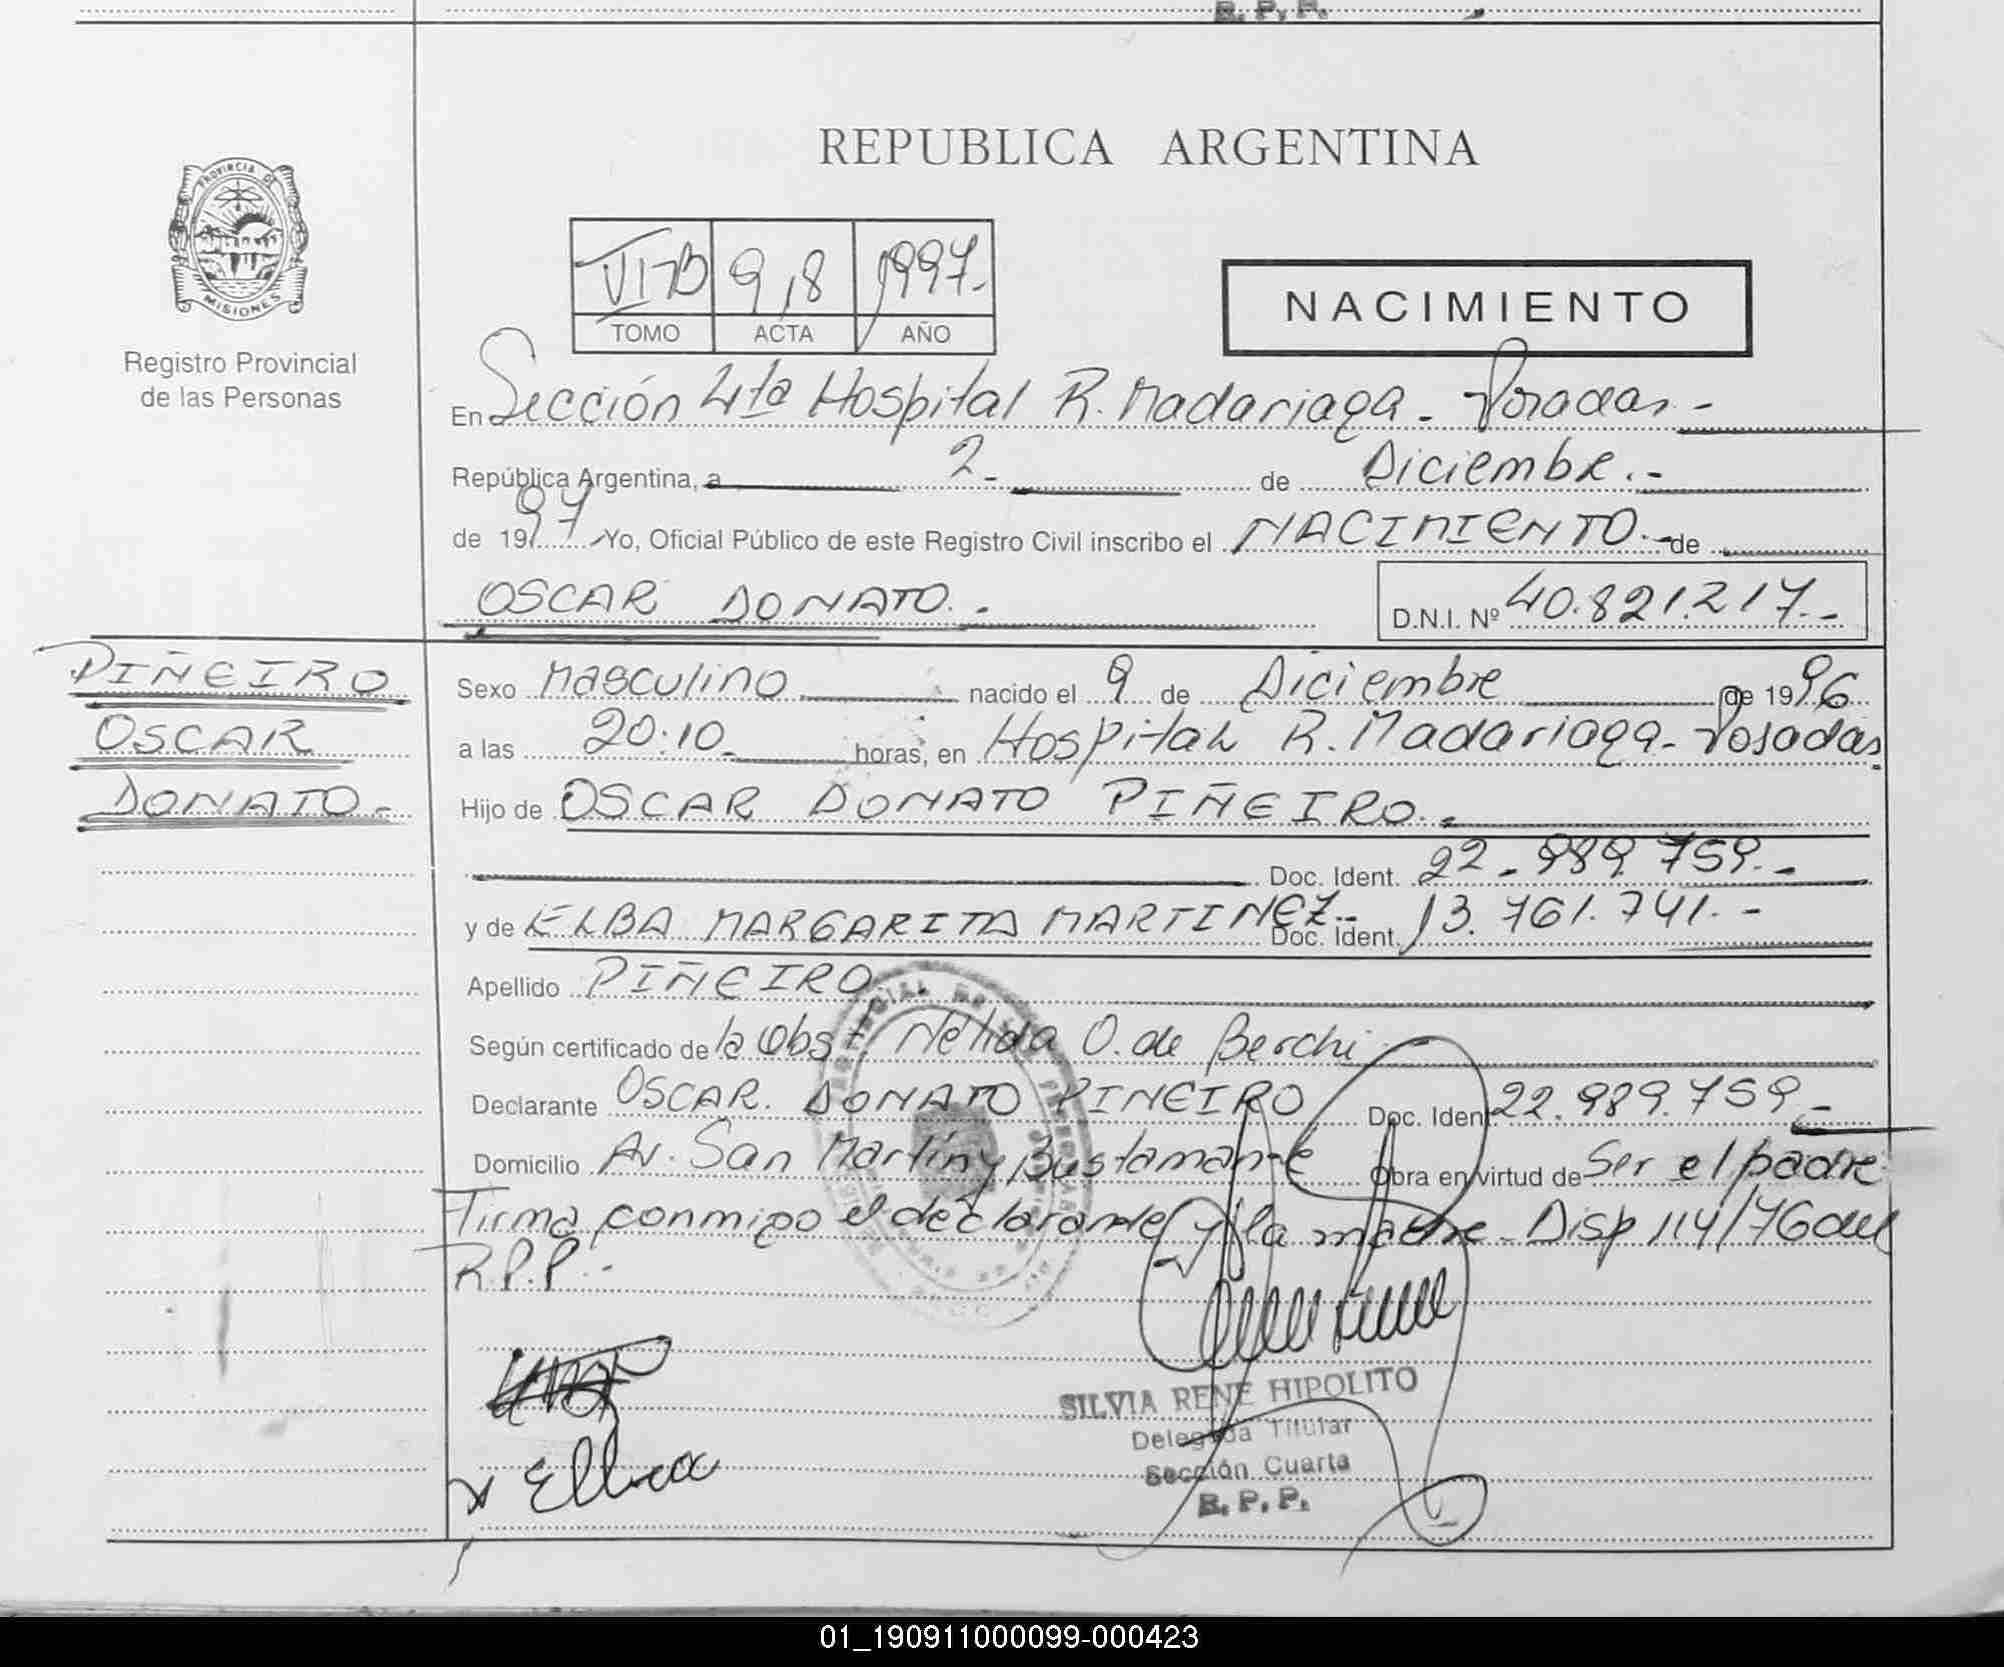 R. P. P.
REPUBLICA ARGENTINA
PROVINCIA DE
MISIONES
Registro Provincial
de las Personas
VI-B 918 1997.-
TOMO ACTA AÑO
NACIMIENTO
En Sección 4ta Hospital R. Madariaga - Posadas -
República Argentina, a 2- de Diciembre.-
de 1997 Yo, Oficial Público de este Registro Civil inscribo el NACIMIENTO.- de
OSCAR DONATO.- D.N.I. Nº 40.821.217.-
PIÑEIRO
OSCAR
DONATO.-
Sexo Masculino nacido el 9 de Diciembre de 1996
a las 20:10 horas, en Hospital R. Madariaga - Posadas.
Hijo de OSCAR DONATO PIÑEIRO.
Doc. Ident. 22.989.759.-
y de ELBA MARGARITA MARTINEZ.- Doc. Ident. 13.761.741.-
Apellido PIÑEIRO
Según certificado de la Obst. Nelida O. de Berchi
Declarante OSCAR. DONATO PIÑEIRO Doc. Ident. 22.989.759.-
Domicilio Av. San Martín y Bustamante Obra en virtud de Ser el padre
Firma conmigo el declarante y la madre - Disp 114/76 del
R.P.P.-
SILVIA RENE HIPOLITO
Delegada Titular
Sección Cuarta
R. P. P.
01_190911000099-000423